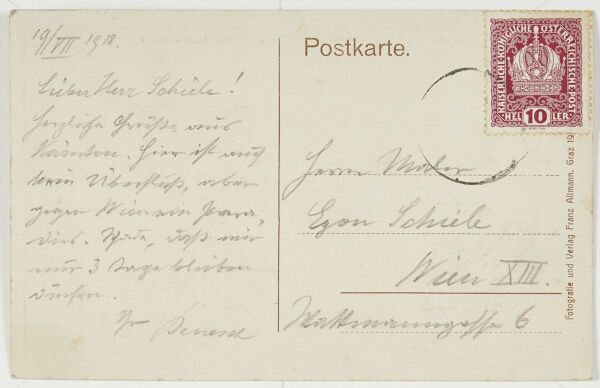 19/VII 1918.
Lieber Herr Schiele!
herzliche Grüße aus
Kärnten. Hier ist auch
kein Überfluß, aber
gegen Wien ein Para-
dies. Schade, daß wir
nur 3 Tage bleiben
dürfen.
Ihr Benesch
Postkarte.
KAISERLICHE KÖNIGLICHE ÖSTERREICHISCHE POST
HELLER
10
Herrn Maler
Egon Schiele
Wien XIII.
Wattmanngasse 6
Fotografie und Verlag Franz Allmann, Graz 19